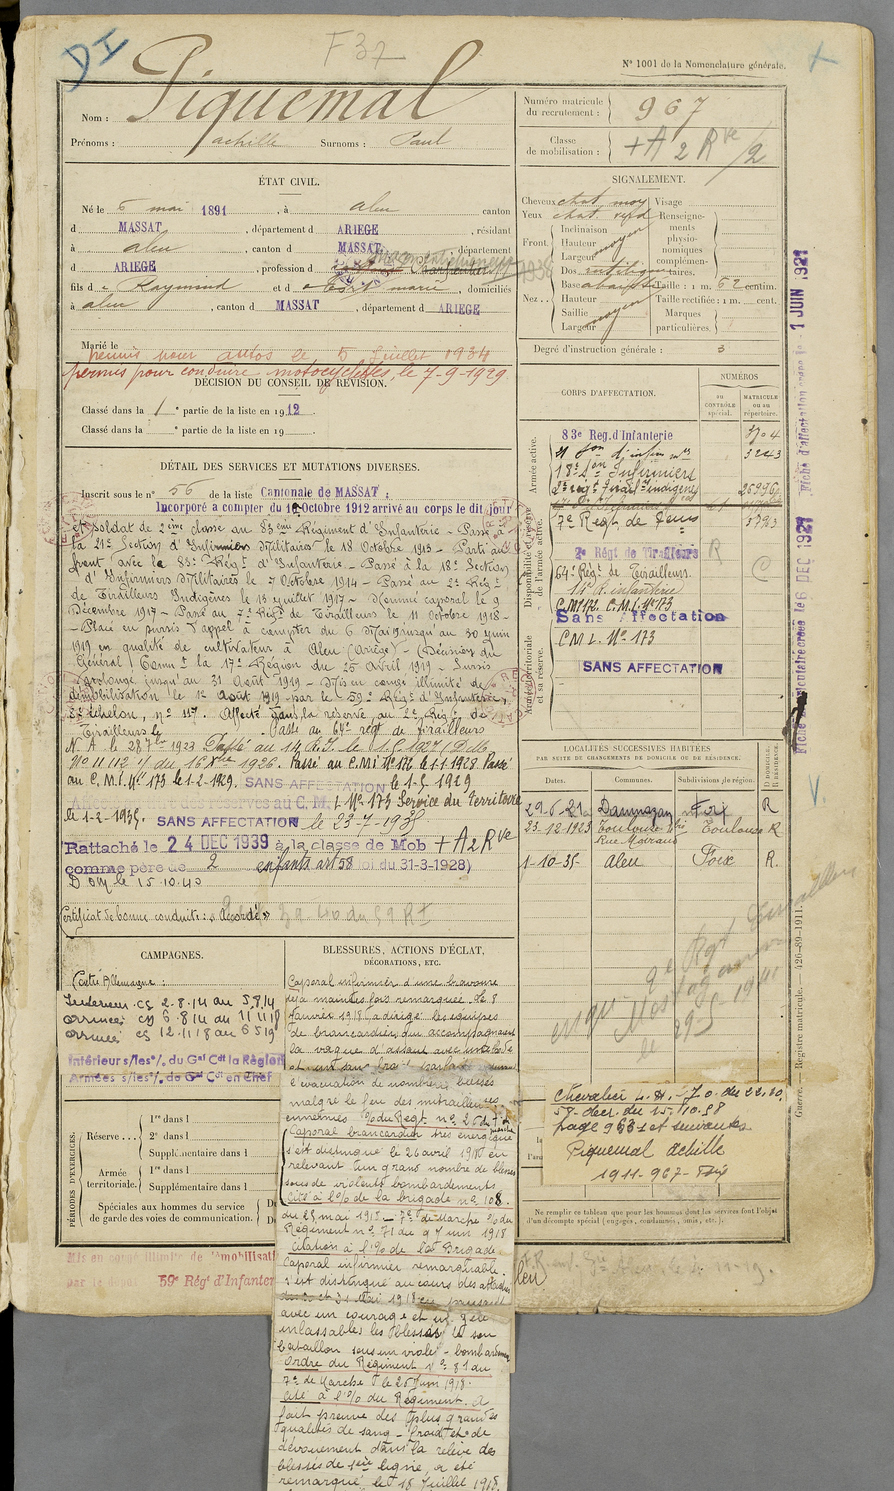 DI
F 37
N° 1001 de la Nomenclature générale.
Nom : Piquemal
Prénoms : achille Surnoms : Paul
Numéro matricule du recrutement : 967
Classe de mobilisation : + A 2 Rve /2
ÉTAT CIVIL.
Né le 6 mai 1891, à aleu canton
d MASSAT, département d ARIEGE, résidant
à aleu, canton d MASSAT, département
d ARIEGE, profession d
fils d e Raymond et d marie, domiciliés
à aleu, canton d MASSAT, département d ARIEGE
Marié le
permis pour autos le 5 juillet 1934
permis pour conduire motocyclettes, le 7-9-1929
SIGNALEMENT.
Cheveux chat moy Visage
Yeux chat
Front. Inclinaison
Hauteur moyen
Largeur
Nez... Dos
Base
Hauteur
Saillie moyen
Largeur
Renseignements physionomiques complémentaires.
Taille : 1 m. 62 centim.
Taille rectifiée : 1 m. cent.
Marques particulières.
Degré d'instruction générale : 3
DÉCISION DU CONSEIL DE RÉVISION.
Classé dans la 1e partie de la liste en 1912.
Classé dans la e partie de la liste en 19
CORPS D'AFFECTATION.
NUMÉROS
AU CONTRÔLE spécial.
MATRICULE ou au répertoire.
Armée active.
Disponibilité et réserve de l'armée active.
Armée territoriale et sa réserve.
83e Reg. d'Infanterie 3704
3243
18e Son Infirmiers
26996
7e Regt de 3723
2e Régt de Tirailleurs R
64e Régt de Tirailleurs. C
14e R. infanterie
C.M 172. C.M.I. N° 173
Sans Affectation
C.M I. N° 173
SANS AFFECTATION
Fiche d'affectation créée le 1 JUIN 1921
6 DEC 1927
DÉTAIL DES SERVICES ET MUTATIONS DIVERSES.
Inscrit sous le n° 56 de la liste Cantonale de MASSAT ;
Incorporé a compter du 10 Octobre 1912 arrivé au corps le dit jour
et soldat de 2ème classe au 83ème Régiment d'Infanterie - Passé à
la 21e Section d'Infirmiers Militaires le 18 Octobre 1913 - Parti au
front avec le 83e Régt d'Infanterie - Passé à la 18e Section
d'Infirmiers Militaires le 7 Octobre 1914 - Passé au 2e Régt
de Tirailleurs Indigènes le 15 juillet 1917 - Nommé caporal le 9
Décembre 1917 - Passé au 7e Régt de Tirailleurs le 11 Octobre 1918 -
- Placé en sursis d'appel à compter du 6 Mai jusqu'au 30 juin
1919 en qualité de cultivateur à Aleu (Ariège) - (Décision du
Général Comt la 17e Région du 25 Avril 1919 - Sursis
prolongé jusqu'au 31 Août 1919 - Mis en congé illimité de
démobilisation le 1e Août 1919 - par le 59e Régt d'Infanterie,
3e échelon, n° 117. Affecté dans la réserve, au 2e Régt de
Tirailleurs le . Passé au 64e régt de tirailleurs
N. A. le 28 7bre 1923 Passé au 14 R.I. le 1.5.1927 (D.M.
N° 11112 du 16 Xbre 1926. Passé au C.M.I N° 172 le 1.1.1928. Passé
au C.M.I. N° 173 le 1-2-1929. SANS AFFECTATION le 1-5 1929
des réserves au C. M. I. N° 173 Service du Territoire
le 1-2-1935. SANS AFFECTATION le 23-7-1935
Rattaché le 24 DEC 1939 à la classe de Mob + A 2 Rve
comme père de 2 enfants art 58 loi du 31-3-1928)
D OM le 15.10.40
Certificat de bonne conduite : « Accordé »
LOCALITÉS SUCCESSIVES HABITÉES
PAR SUITE DE CHANGEMENTS DE DOMICILE OU DE RÉSIDENCE.
Dates. Communes. Subdivisions de région. D DOMICILE R RÉSIDENCE.
29.6.21 Daumazan Foix R
23-12-1923 Toulouse Toulouse R
Rue
1-10-35- aleu Foix R.
2e Regt Tirailleurs
le 29-5-1941
CAMPAGNES.
Contre Allemagne :
Intérieur CS 2.8.14 au 5.8.14
Armées CD 6.8.14 au 11.11.18
Armées CS 12.11.18 au 6 5 19
Intérieur s/les°/. du Gal Cdt la Région
Armées s/les°/. de Gal Cdt en Chef
BLESSURES, ACTIONS D'ÉCLAT,
DÉCORATIONS, ETC.
Caporal infirmier d'une bravoure
déjà maintes fois remarquée. Le 8
Janvier 1918, a dirigé les équipes
de brancardiers qui accompagnaient
la vague d'assaut avec
et un sang froid parfait
évacuation de nombreux blessés
malgré le feu des mitrailleuses
ennemies °/. du Régt n° 26 du 7e de marche
Caporal brancardier très énergique
s'est distingué le 26 avril 1918 en
relevant un grand nombre de blessés
sous de violents bombardements
Cité à l'°/. de la brigade n° 108.
du 25 mai 1918 - 7e de Marche °/. du
Régiment n° 71 du 9 Juin 1918
Citation à l'°/. de la Brigade
Caporal infirmier remarquable.
s'est distingué au cours des attaques
du 30 et 31 Mai 1918 en pansant
avec un courage et un zèle
inlassables les blessés de son
bataillon sous un violent bombardement
Ordre du Régiment N° 81 du
7e de Marche le 25 Juin 1918.
Cité à l'°/. du Régiment. A
fait preuve des plus grandes
qualités de sang-froid et de
dévouement dans la relève des
blessés de 1ère ligne, a été
remarqué, le 18 Juillet 1918,
PÉRIODES D'EXERCICES.
Réserve... 1re dans l
2e dans l
Supplémentaire dans l
Armée territoriale. 1re dans l
Supplémentaire dans l
Spéciales aux hommes du service de garde des voies de communication.
Mis en congé illimité de démobilisation
59e Régt d'Infanterie
Chevalier L.H. - J.O. du 22.10.
58. décr. du 15.10.58
page 9631 et suivantes
Piquemal Achille
1911-967- Foix
Ne remplir ce tableau que pour les hommes dont les services font l'objet d'un décompte spécial (engagés, condamnés, omis, etc.).
Guerre. — Registre matricule. — 426-89-1911.